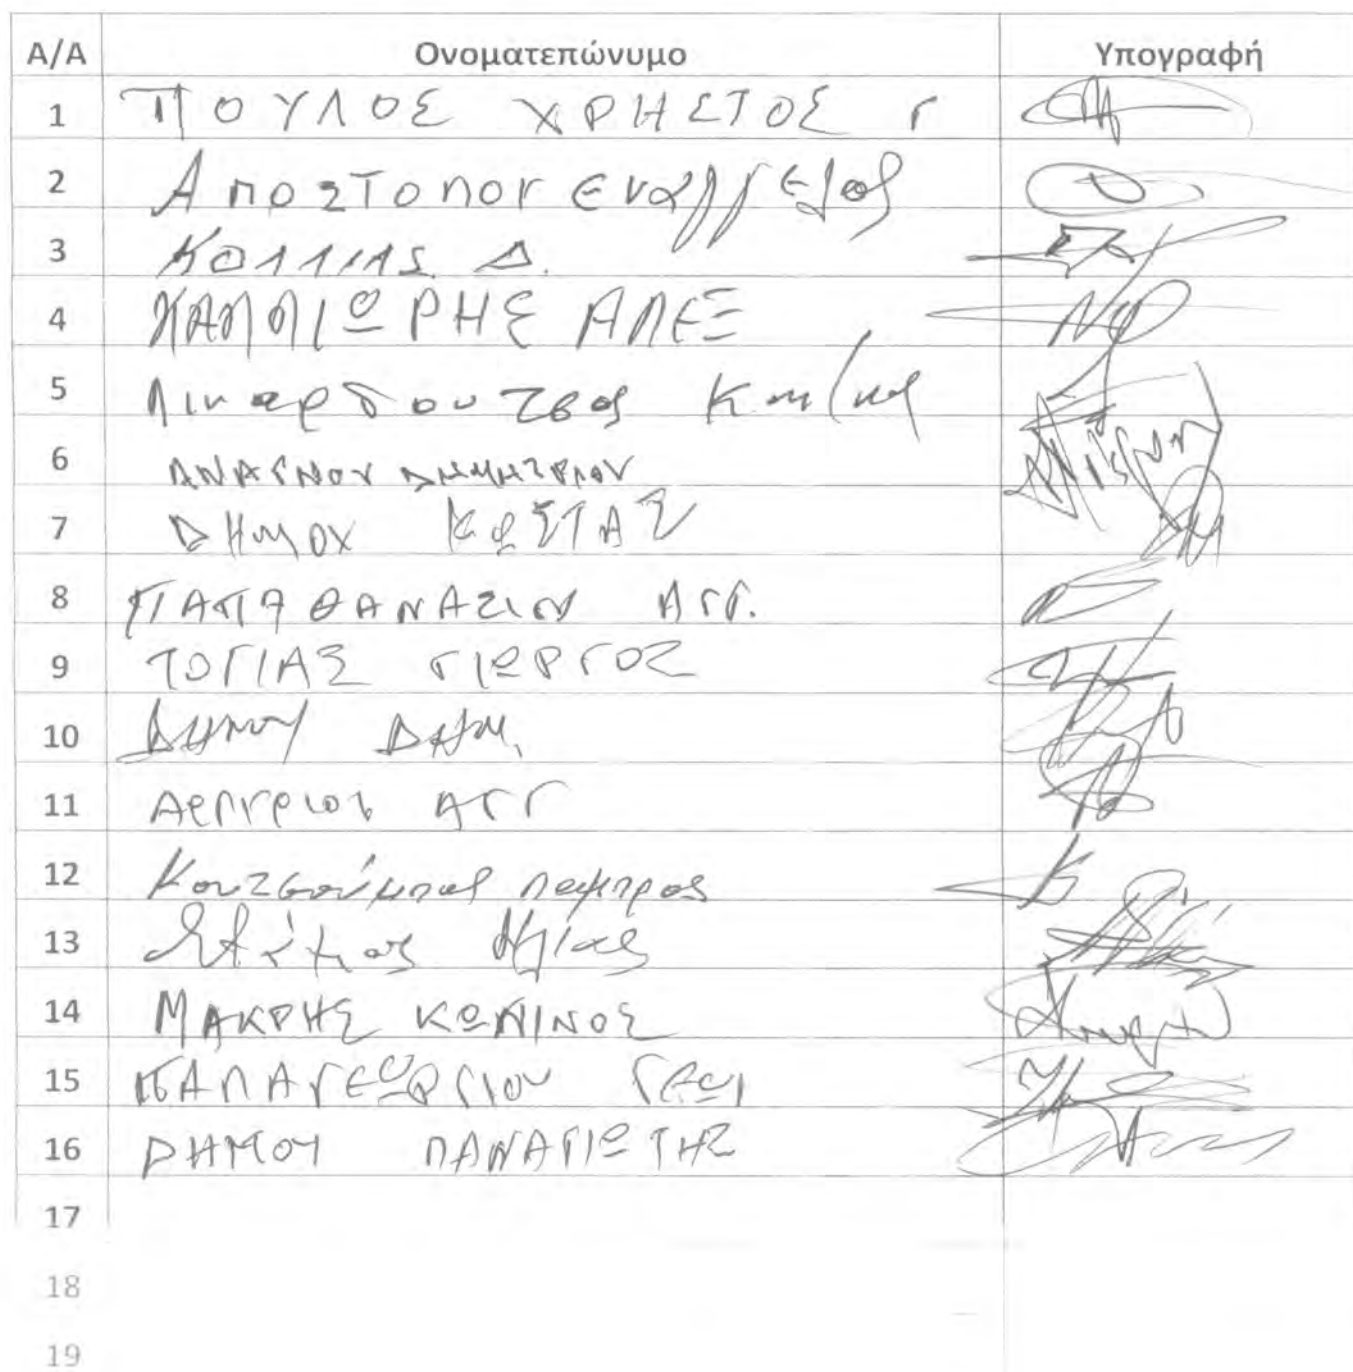 Α/Α Ονοματεπώνυμο Υπογραφή
1 ΠΟΥΛΟΣ ΧΡΗΣΤΟΣ Γ
2 Αποστολου Ευαγγελος
3 ΚΟΛΛΙΑΣ Δ.
4 ΑΛΕΞ
5 Λιναρδουτσος
6 ΑΝΑΓΝΟΥ ΔΗΜΗΤΡΙΟΥ
7 ΔΗΜΟΥ ΚΩΣΤΑΣ
8 ΠΑΠΑΘΑΝΑΣΙΟΥ ΑΓΓ.
9 ΤΟΓΙΑΣ ΓΙΩΡΓΟΣ
10 ΔΗΜΟΥ ΔΗΜ.
11 ΑΓΓ
12 Κουτσούμπας Λαμπρος
13 Ηλίας
14 ΜΑΚΡΗΣ ΚΩΝΙΝΟΣ
15 ΠΑΠΑΓΕΩΡΓΙΟΥ
16 ΔΗΜΟΥ ΠΑΝΑΓΙΩΤΗΣ
17
18
19